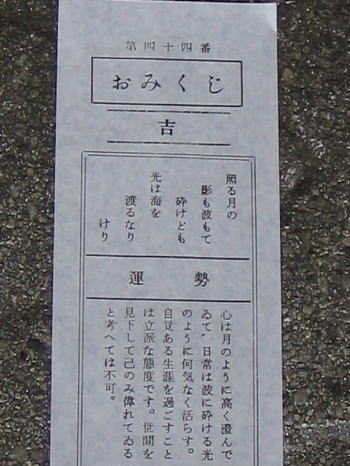 第四十四番
おみくじ
吉
照る月の
影も波もて
砕けども
光は海を
渡るなり
けり
運勢
心は月のように高く澄んで
ゐて、日常は波に砕ける光
のように何気なく活らす。
自覚ある生涯を過ごすこと
は立派な態度です。世間を
見下して己のみ偉れてゐる
と考へては不可。